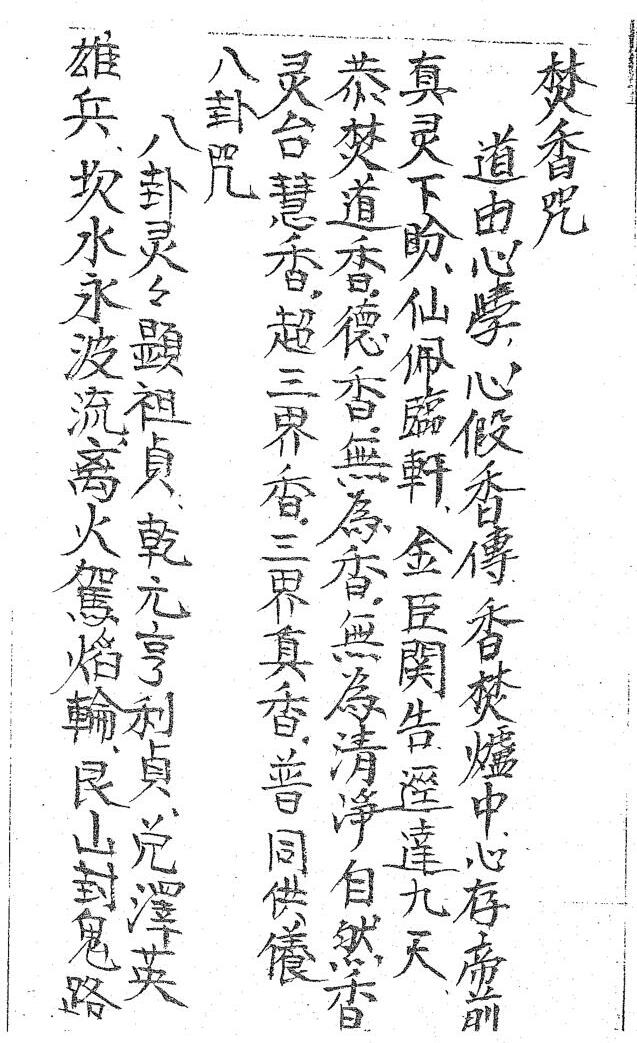 焚香咒
道由心學、心假香傳、香焚爐中、心存帝前
真灵下盼、仙佩臨軒、金臣関告、逕達九天、
恭焚道香、德香、無為香、無為清淨自然香
灵台慧香、超三界香、三界真香、普同供儀
八卦咒
八卦灵々顕祖貞、乾元亨利貞、兑澤英
雄兵、坎水永波流、离火駕焰輪、艮山封鬼路